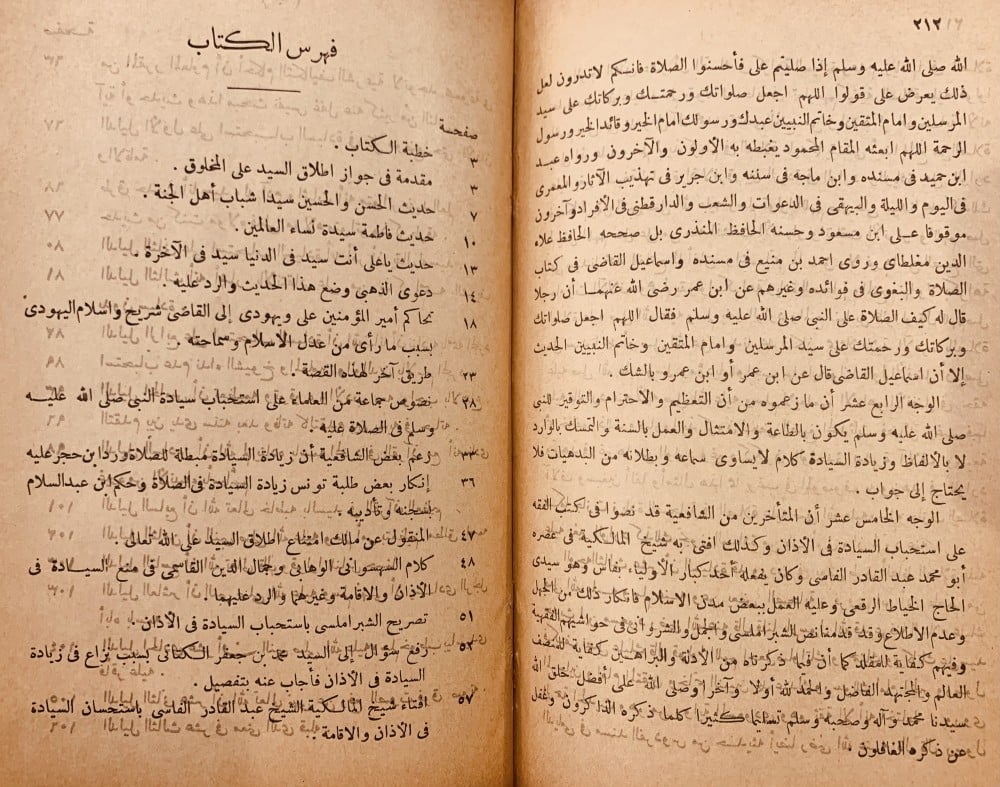 ٢١٢
الله صلى الله عليه وسلم إذا صليتم على فأحسنوا الصلاة فانكم لاتدرون لعل
ذلك يعرض على قولوا اللهم اجعل صلواتك ورحمتك وبركاتك على سيد
المرسلين وامام المتقين وخاتم النبيين عبدك ورسولك امام الخير وقائد الخير ورسول
الرحمة اللهم ابعثه المقام المحمود يغبطه به الأولون والآخرون ورواه عبد
ابن حميد فى مسنده وابن ماجه فى سننه وابن جرير فى تهذيب الآثار والمعمرى
فى اليوم والليلة والبيهقى فى الدعوات والشعب والدارقطنى فى الأفراد وآخرون
موقوفا على ابن مسعود وحسنه الحافظ المنذرى بل صححه الحافظ علاء
الدين مغلطاى وروى احمد بن منيع فى مسنده واسماعيل القاضى فى كتاب
الصلاة والبغوى فى فوائده وغيرهم عن ابن عمر رضى الله عنهما أن رجلا
قال له كيف الصلاة على النبي صلى الله عليه وسلم فقال اللهم اجعل صلواتك
وبركاتك ورحمتك على سيد المرسلين وامام المتقين وخاتم النبيين الحديث
إلا أن اسماعيل القاضى قال عن ابن عمر أو ابن عمرو بالشك .
الوجه الرابع عشر أن ما زعموه من أن التعظيم والاحترام والتوقير للنبى
صلى الله عليه وسلم يكون بالطاعة والامتثال والعمل بالسنة والتمسك بالوارد
لا بالألفاظ وزيادة السيادة كلام لا يساوى سماعه وبطلانه من البدهيات فلا
يحتاج إلى جواب .
الوجه الخامس عشر أن المتأخرين من الشافعية قد نصوا فى كتب الفقه
على استحباب السيادة فى الأذان وكذلك افتى به شيخ المالكية فى عصره
أبو محمد عبد القادر الفاسى وكان يفعله أحد كبار الأولياء بفاس وهو سيدى
الحاج الخياط الرقعى وعليه العمل ببعض مدن الاسلام فانكار ذلك من الجهل
وعدم الاطلاع وقد قدمنا نص الشبراملسى والجمل والشروانى فى حواشيهم الفقهية
وفيهم كفاية للمقلد كما أن فيما ذكرناه من الأدلة والبراهين كفاية للمنصف
العالم والمجتهد الفاضل والحمد لله أولا وآخرا وصلى الله على أفضل خلق الله
سيدنا محمد وآله وصحبه وسلم تسليما كثيرا كلما ذكره الذاكرون وغفل
عن ذكره الغافلون
فهرس الكتاب
صفحة
خطبة الكتاب .
٣ مقدمة فى جواز اطلاق السيد على المخلوق .
٧ حديث الحسن والحسين سيدا شباب أهل الجنة .
١٠ حديث فاطمة سيدة نساء العالمين .
١٣ حديث ياعلى أنت سيد فى الدنيا سيد فى الآخرة .
١٤ دعوى الذهبى وضع هذا الحديث والرد عليه .
١٨ تحاكم أمير المؤمنين على ويهودى إلى القاضى شريح واسلام اليهودى
بسبب ما رأى من عدل الاسلام وسماحته .
٢٣ طريق آخر لهذه القصة
٢٨ نصوص جماعة من العلماء على استحباب سيادة النبى صلى الله عليه
وسلم فى الصلاة عليه
زعم بعض الشافعية أن زيادة السيادة مبطلة للصلاة ورد ابن حجر عليه
٣٦ إنكار بعض طلبة تونس زيادة السيادة فى الصلاة وحكم ابن عبد السلام
بسجنه وتأديبه
٤٧ المنقول عن مالك امتناع اطلاق السيد على الله تعالى
٤٨ كلام السهسوانى الوهابى وجمال الدين القاسمى فى منع السيادة فى
الأذان والاقامة وغيرهما والرد عليهما
٥١ تصريح الشبراملسى باستحباب السيادة فى الأذان .
٥٢ رفع سؤال إلى السيد محمد بن جعفر الكتانى بسبب نزاع فى زيادة
السيادة فى الأذان فأجاب عنه بتفصيل .
٥٧ افتاء شيخ المالكية الشيخ عبد القادر الفاسى باستحسان السيادة
فى الأذان والاقامة .